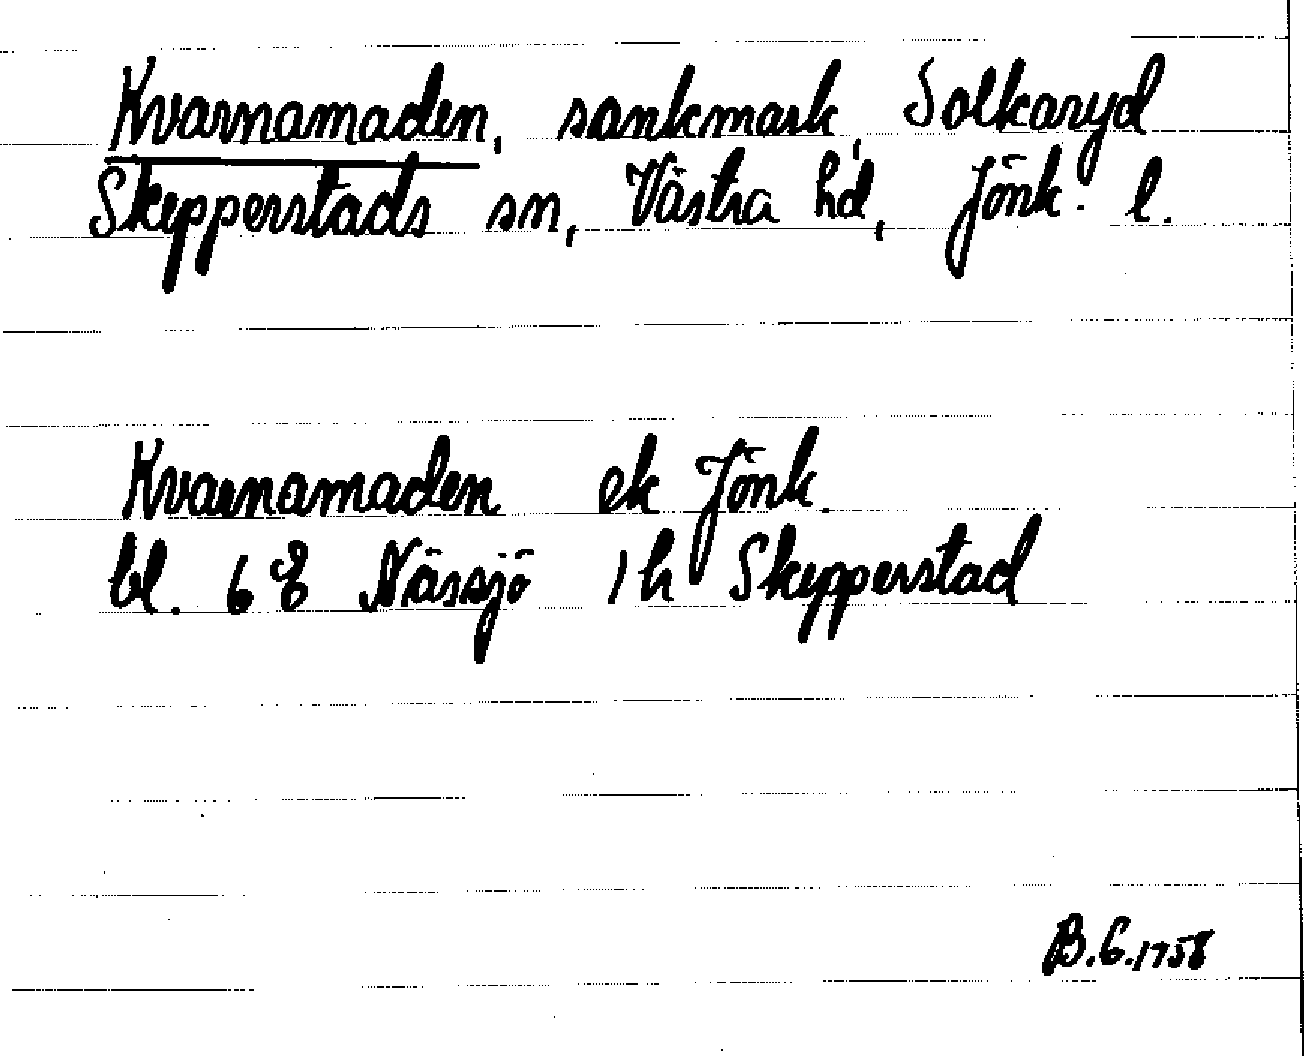 Kvarnamaden, sankmark, Solkaryd
Skepperstads sn, Västra hd, Jönk. l.
Kvarnamaden ek Jönk.
bl. 6E Nässjö 1h Skepperstad
B.G.1758